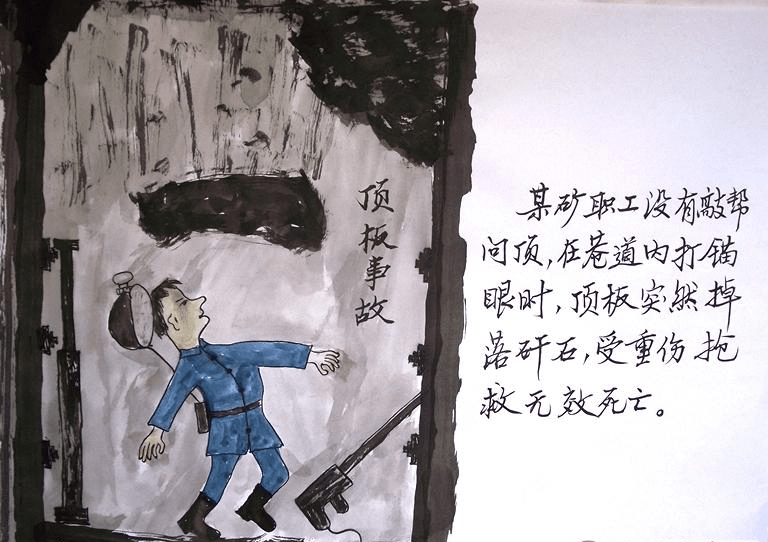 顶板事故
某矿职工没有敲帮
问顶,在巷道内打锚
眼时,顶板突然掉
落矸石,受重伤抢
救无效死亡。